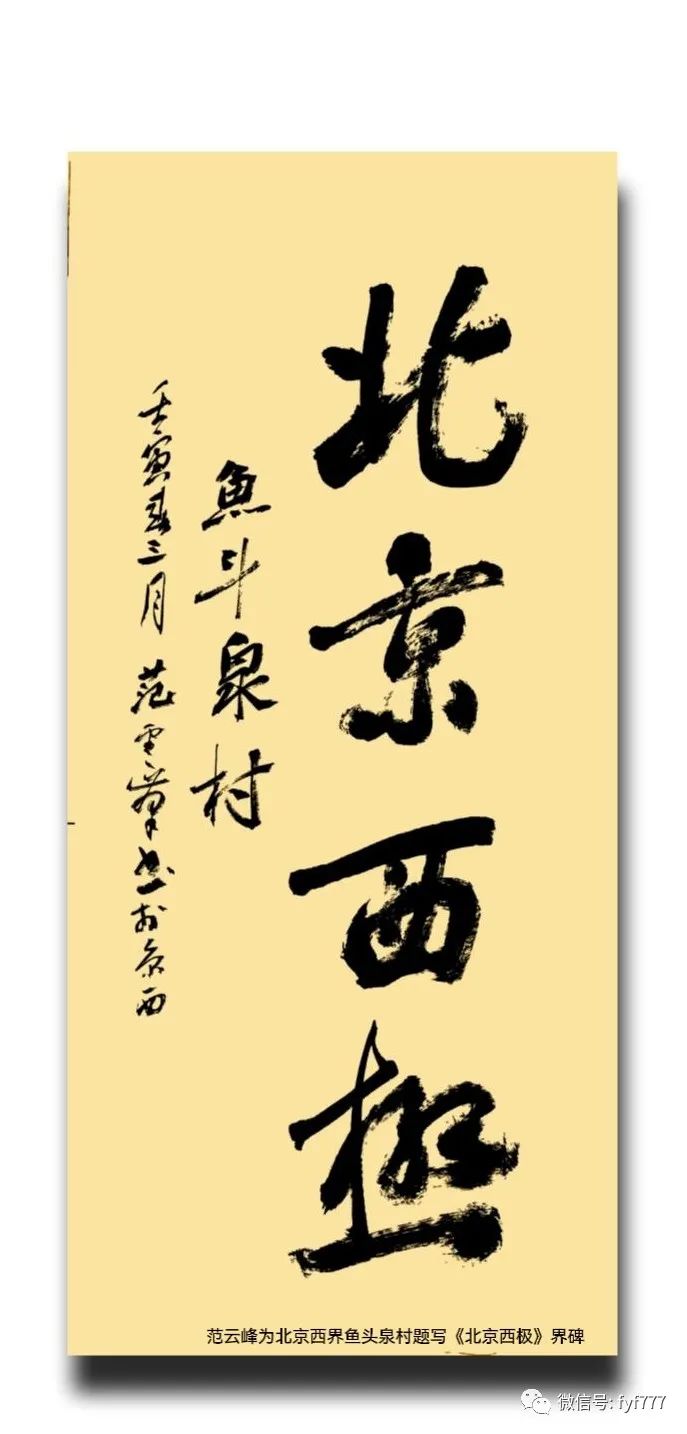 北京西極
魚斗泉村
壬寅春三月 范雲峰书於京西
范云峰为北京西界鱼头泉村题写《北京西极》界碑
微信号: fyf777